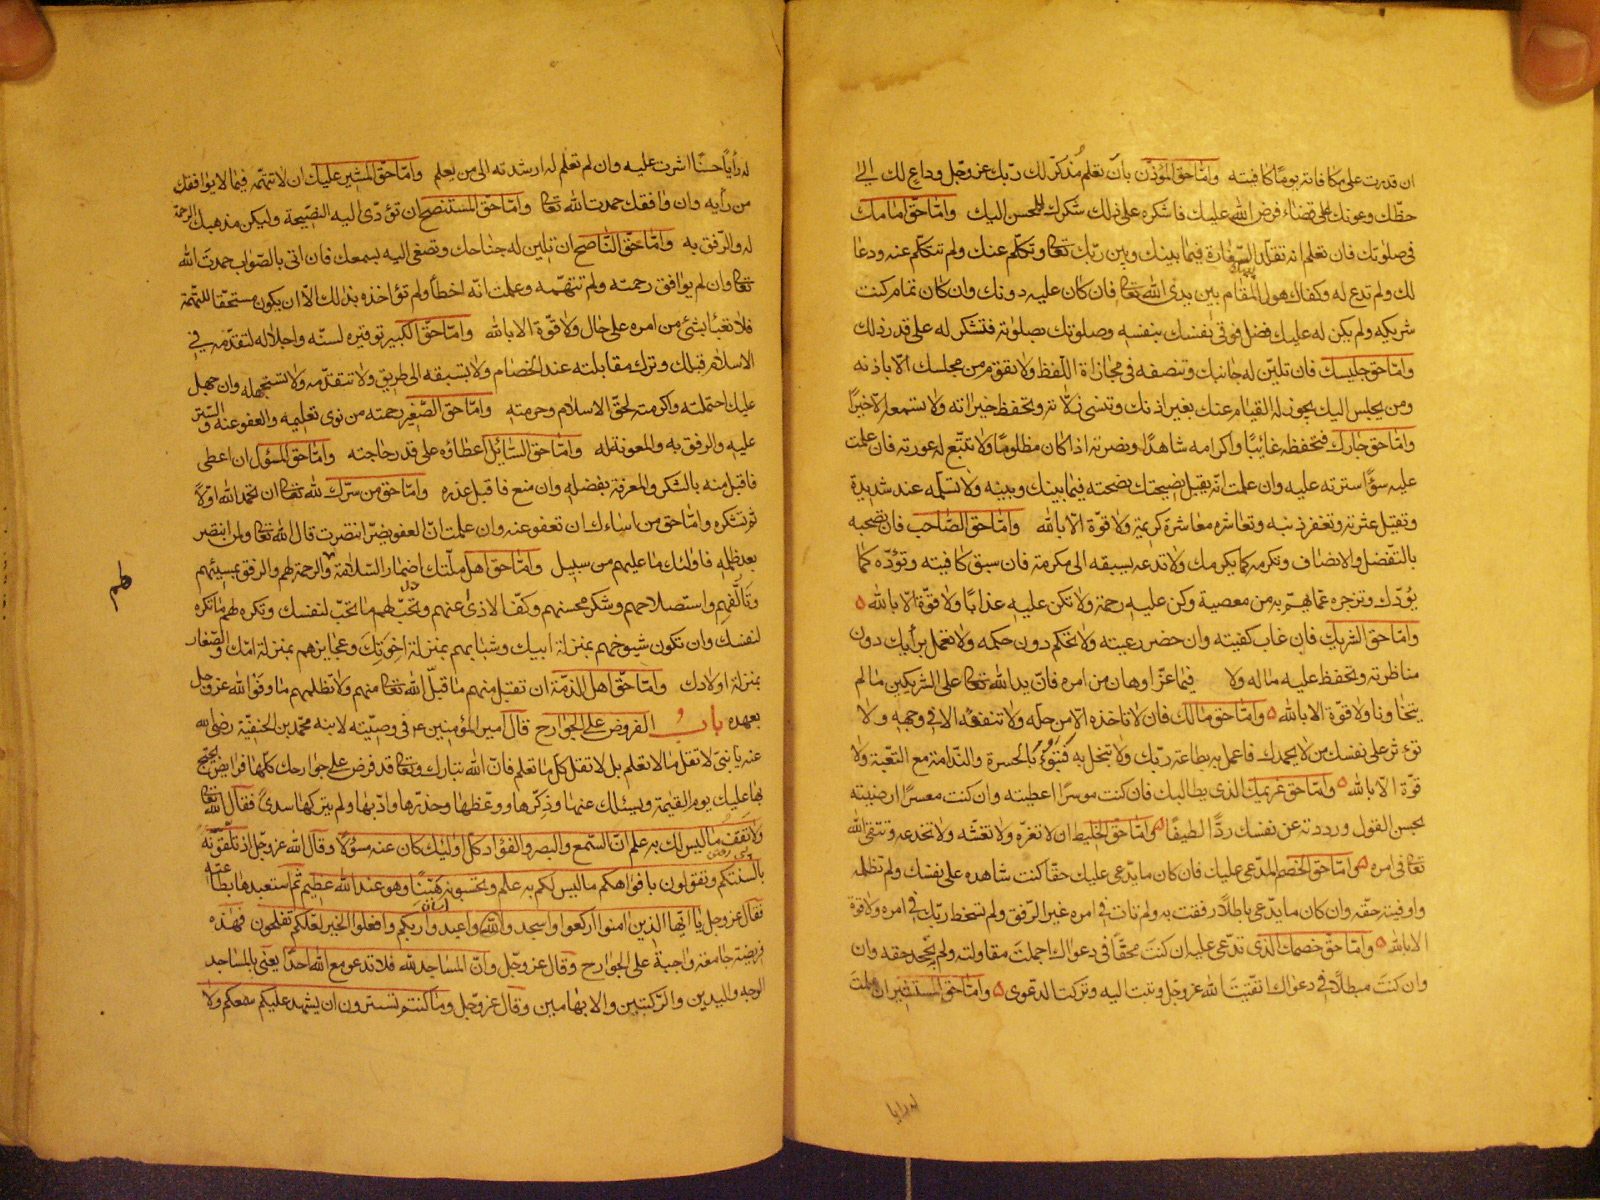 ان قدرت على مكافاته يوما كافيته واما حق المؤذن بان تعلم مذكر لك ربك عز وجل وداع لك الى
حظك وعونك على قضاء فرض الله عليك فاشكره على ذلك شكرك للمحسن اليك واما حق امامك
فى صلوتك فان تعلم انه تقلد السفارة فيما بينك وبين ربك تعالى وتكلم عنك ولم تتكلم عنه ودعا
لك ولم تدع له وكفاك هول المقام بين يدى الله تعالى فان كان عليه دونك وان كان تمام كنت
شريكه ولم يكن له عليك فضل فوقى نفسك بنفسه وصلوتك بصلوته فتشكر له على قدر ذلك
واما حق جليسك فان تلين له جانبك وتنصفه فى مجازاة اللفظ ولا تقوم من مجلسك الا باذنه
ومن يجلس اليك يجوز له القيام عنك بغير اذنك وتنسى زلاته وتحفظ خيراته ولا تسمعه الا خيرا
واما حق جارك فتحفظه غائبا واكرامه شاهدا ونصرته اذا كان مظلوما ولا تتبع له عورته فان علمت
عليه سوءا سترته عليه وان علمت انه يقبل نصيحتك نصحته فيما بينك وبينه ولا تسلمه عند شديدة
وتقيل عثرته وتغفر ذنبه وتعاشره معاشرة كريمة ولا قوة الا بالله واما حق الصاحب فان تصحبه
بالتفضل والانصاف وتكرمه كما يكرمك ولا تدعه يسبقه الى مكرمة فان سبق كافيته وتؤده كما
يودك وتزجره عما هم به من معصية وكن عليه رحمة ولا تكن عليه عذابا ولا قوة الا بالله
واما حق الشريك فان غاب كفيته وان حضر رعيته ولا تحكم دون حكمه ولا تعمل برأيك دون
مناظرته وتحفظ عليه ماله ولا فيما عز او هان من امره فان يد الله تعالى على الشريكين ما لم
يتخاونا ولا قوة الا بالله واما حق مالك فان لا تاخذه الا من حله ولا تنفقه الا فى وجهه ولا
تؤثر على نفسك من لا يحمدك فاعمل به بطاعة ربك ولا تبخل به فتبوء بالحسرة والندامة مع التبعة ولا
قوة الا بالله واما حق غريمك الذى يطالبك فان كنت موسرا اعطيته وان كنت معسرا ارضيته
بحسن القول ورددته عن نفسك ردا لطيفا واما حق الخليط ان لا تغره ولا تغشه ولا تخدعه وتتقى الله
تعالى فى امره واما حق الخصم المدعى عليك فان كان ما يدعى عليك حقا كنت شاهده على نفسك ولم تظلمه
واوفيته حقه وان كان ما يدعى باطلا رفقت به ولم تات فى امره غير الرفق ولم تسخط ربك فى امره ولا قوة
الا بالله واما حق خصمك الذى تدعى عليه ان كنت محقا فى دعواك اجملت مقاولته ولم تجحد حقه وان
وان كنت مبطلا فى دعواك اتقيت الله عز وجل وتبت اليه وتركت الدعوى واما حق المستشير ان علمت
له رايا
له رأيا حسنا اشرت عليه وان لم تعلم له ارشدته الى من يعلم واما حق المشير عليك ان لا تتهمه فيما لا يوافقك
من رأيه وان وافقك حمدت الله تعالى واما حق المستنصح ان تؤدى اليه النصيحة وليكن مذهبك الرحمة
له والرفق به واما حق الناصح ان تلين له جناحك وتصغى اليه بسمعك فان اتى بالصواب حمدت الله
تعالى وان لم يوافق رحمته ولم تتهمه وعلمت انه اخطأ ولم تؤاخذه بذلك الا ان يكون مستحقا للتهمة
فلا تعبأ بشئ من امره على حال ولا قوة الا بالله واما حق الكبير توقيره لسنه واجلاله لتقدمه فى
الاسلام قبلك وترك مقابلته عند الخصام ولا تسبقه الى طريق ولا تتقدمه ولا تستجهله وان جهل
عليك احتملته واكرمته لحق الاسلام وحرمته واما حق الصغير رحمته من نوى تعليمه والعفو عنه والستر
عليه والرفق به والمعونة له واما حق السائل اعطاؤه على قدر حاجته واما حق المسؤل ان اعطى
فاقبل منه بالشكر والمعرفة بفضله وان منع فاقبل عذره واما حق من سرك لله تعالى ان تحمد الله اولا
ثم تشكره واما حق من اساءك ان تعفو عنه وان علمت ان العفو يضر انتصرت قال الله تعالى ولمن انتصر
بعد ظلمه فاولئك ما عليهم من سبيل واما حق اهل ملتك اضمار السلامة والرحمة لهم والرفق بمسيئهم
وتألفهم واستصلاحهم وشكر محسنهم وكف الاذى عنهم وتحب لهم ما تحب لنفسك وتكره لهم ما تكره
لنفسك وان تكون شيوخهم بمنزلة ابيك وشبابهم بمنزلة اخوتك وعجايزهم بمنزلة امك والصغار
بمنزلة اولادك واما حق اهل الذمة ان تقبل منهم ما قبل الله تعالى منهم ولا تظلمهم ما وفوا لله عز وجل
بعهده باب الفروض على الجوارح قال امير المؤمنين ع فى وصيته لابنه محمد بن الحنفية رضى الله
عنه يا بنى لا تقل ما لا تعلم بل لا تقل كل ما تعلم فان الله تبارك وتعالى قد فرض على جوارحك كلها فرايض يحتج
بها عليك يوم القيمة ويسئلك عنها وذكرها ووعظها وحذرها وادبها ولم يتركها سدى فقال الله تعالى
ولا تقف ما ليس لك به علم ان السمع والبصر والفؤاد كل اوليك كان عنه مسؤلا وقال الله عز وجل اذ تلقونه
بالسنتكم وتقولون بافواهكم ما ليس لكم به علم وتحسبونه هينا وهو عند الله عظيم ثم استعبدها بطاعته
فقال عز وجل يا ايها الذين امنوا اركعوا واسجدوا واعبدوا ربكم وافعلوا الخير لعلكم تفلحون فهذه
فريضة جامعة واجبة على الجوارح وقال عز وجل وان المساجد لله فلا تدعو مع الله احدا يعنى بالمساجد
الوجه واليدين والركبتين والابهامين وقال عز وجل وما كنتم تستترون ان يشهد عليكم سمعكم ولا